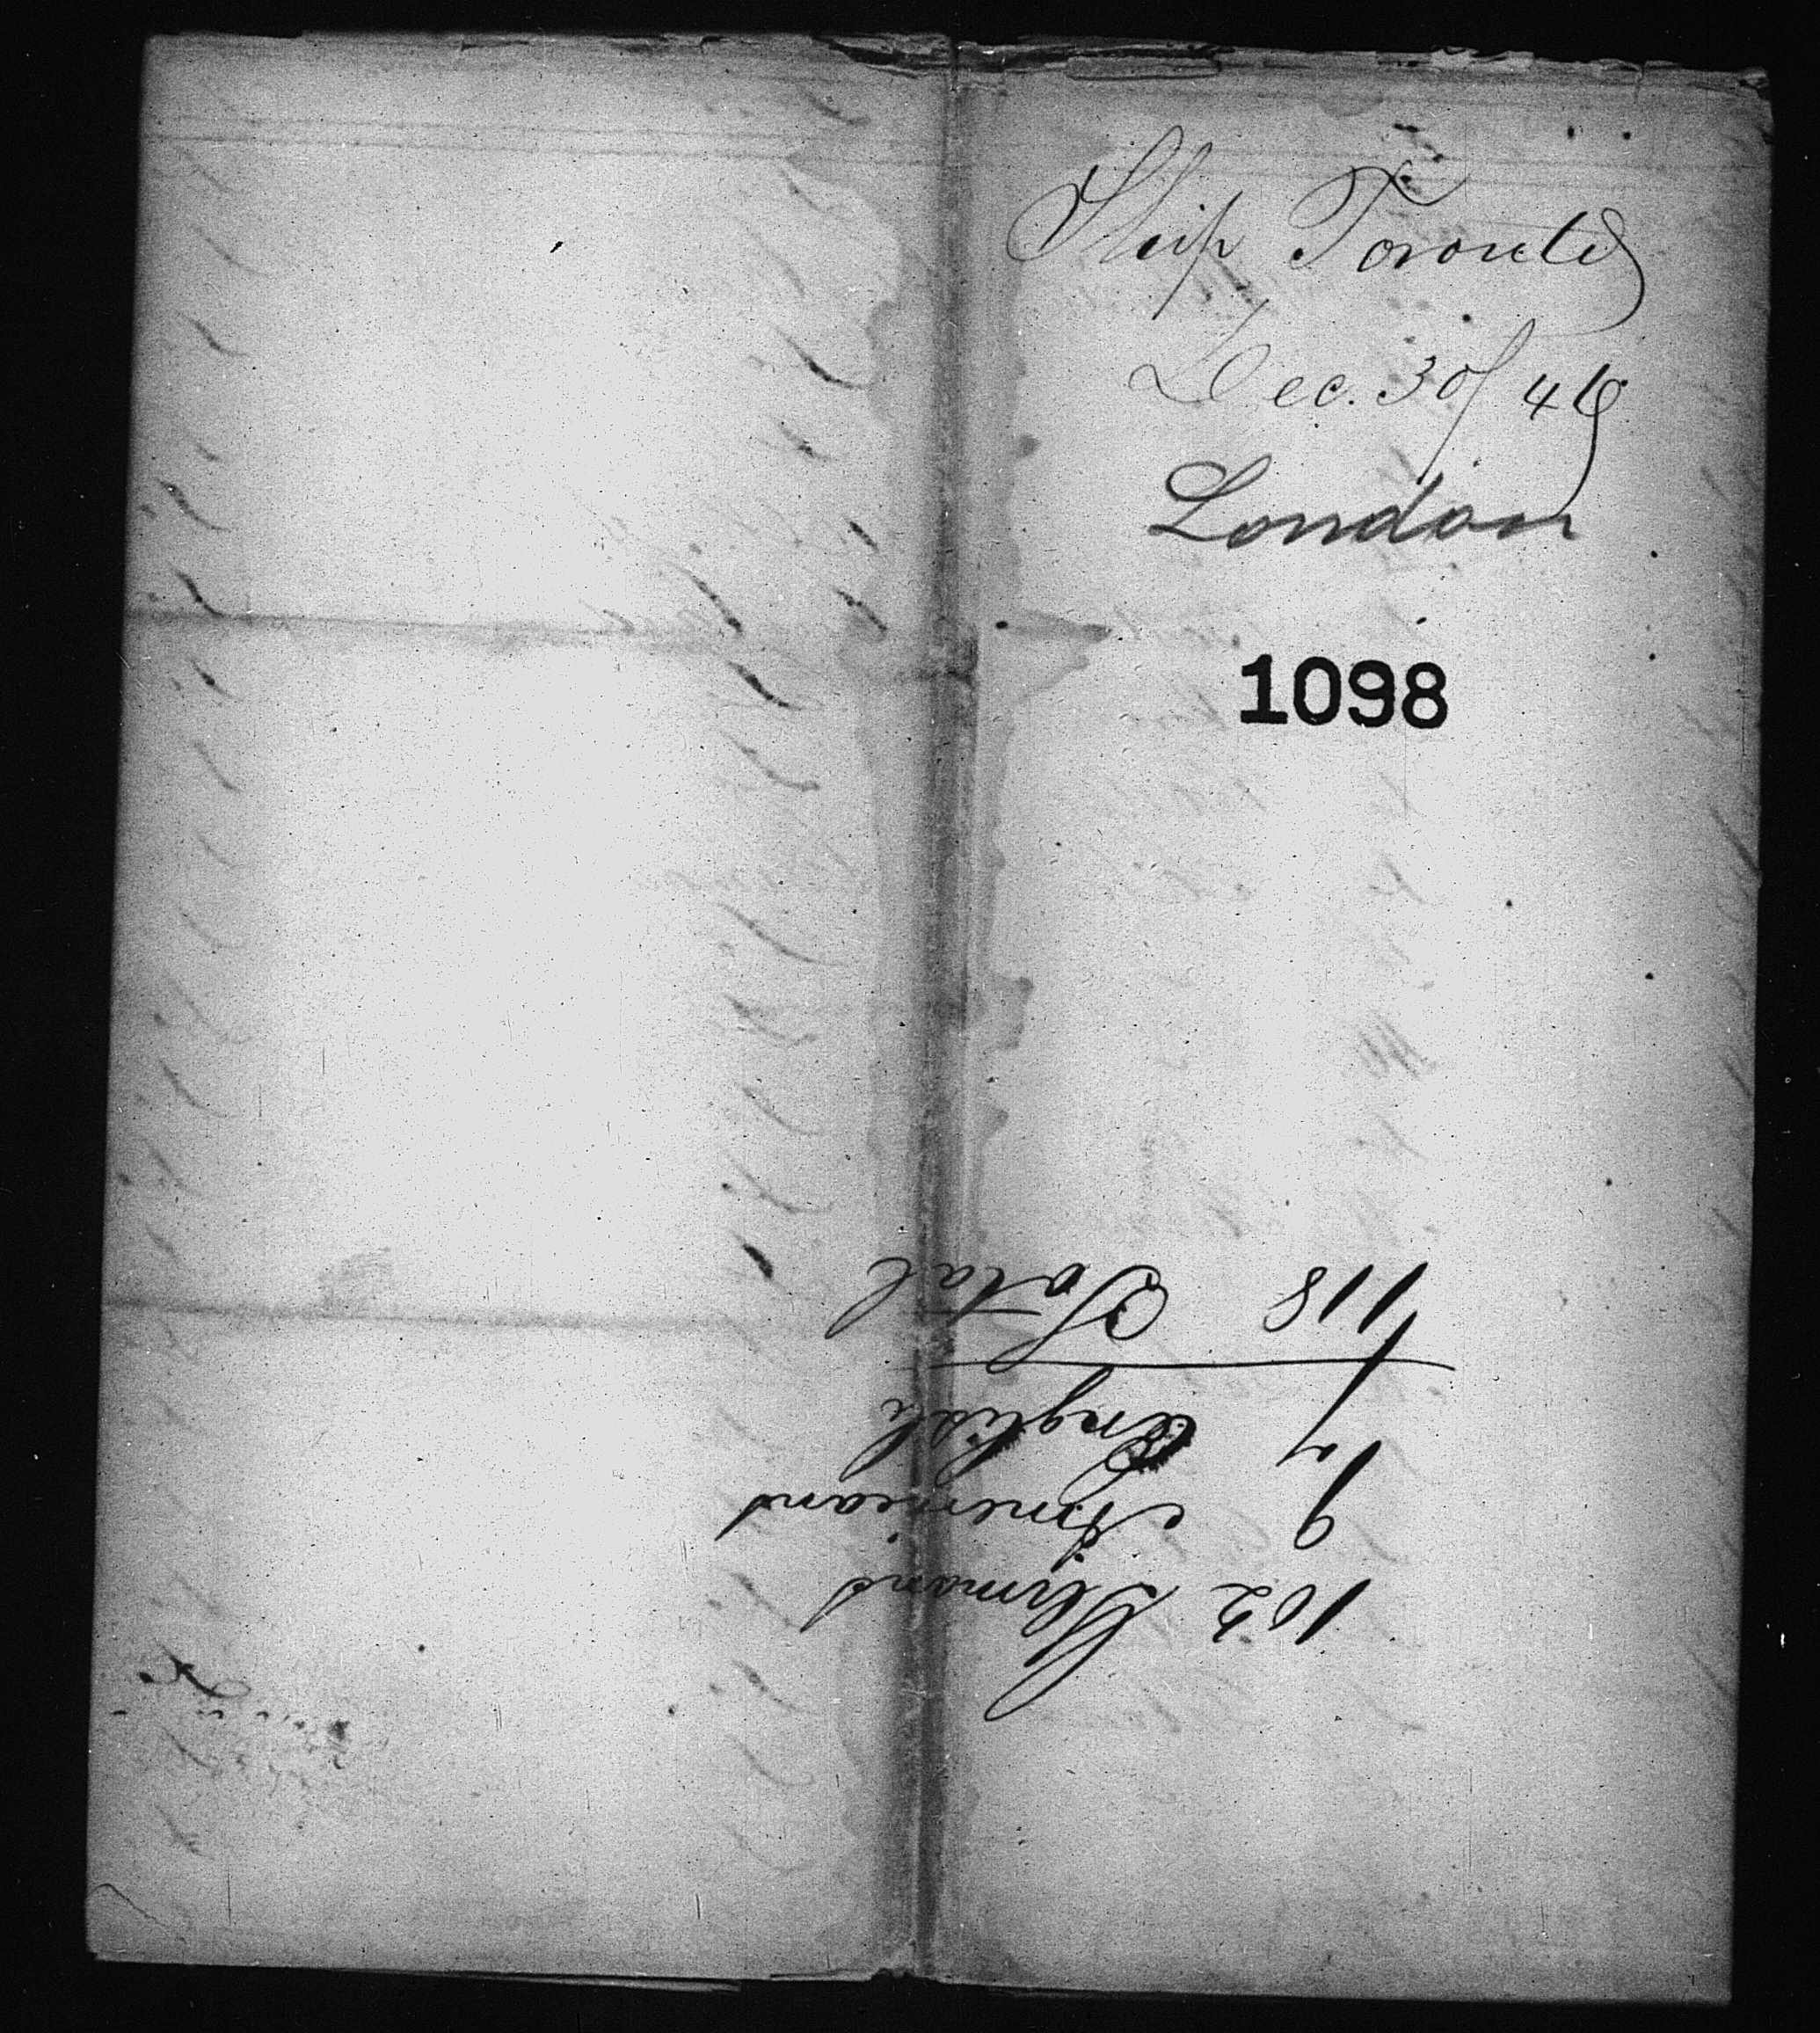 Ship Toronto
Dec. 30/ 46
London
1098
102 Germans
9 Americans
7 English
118 Total